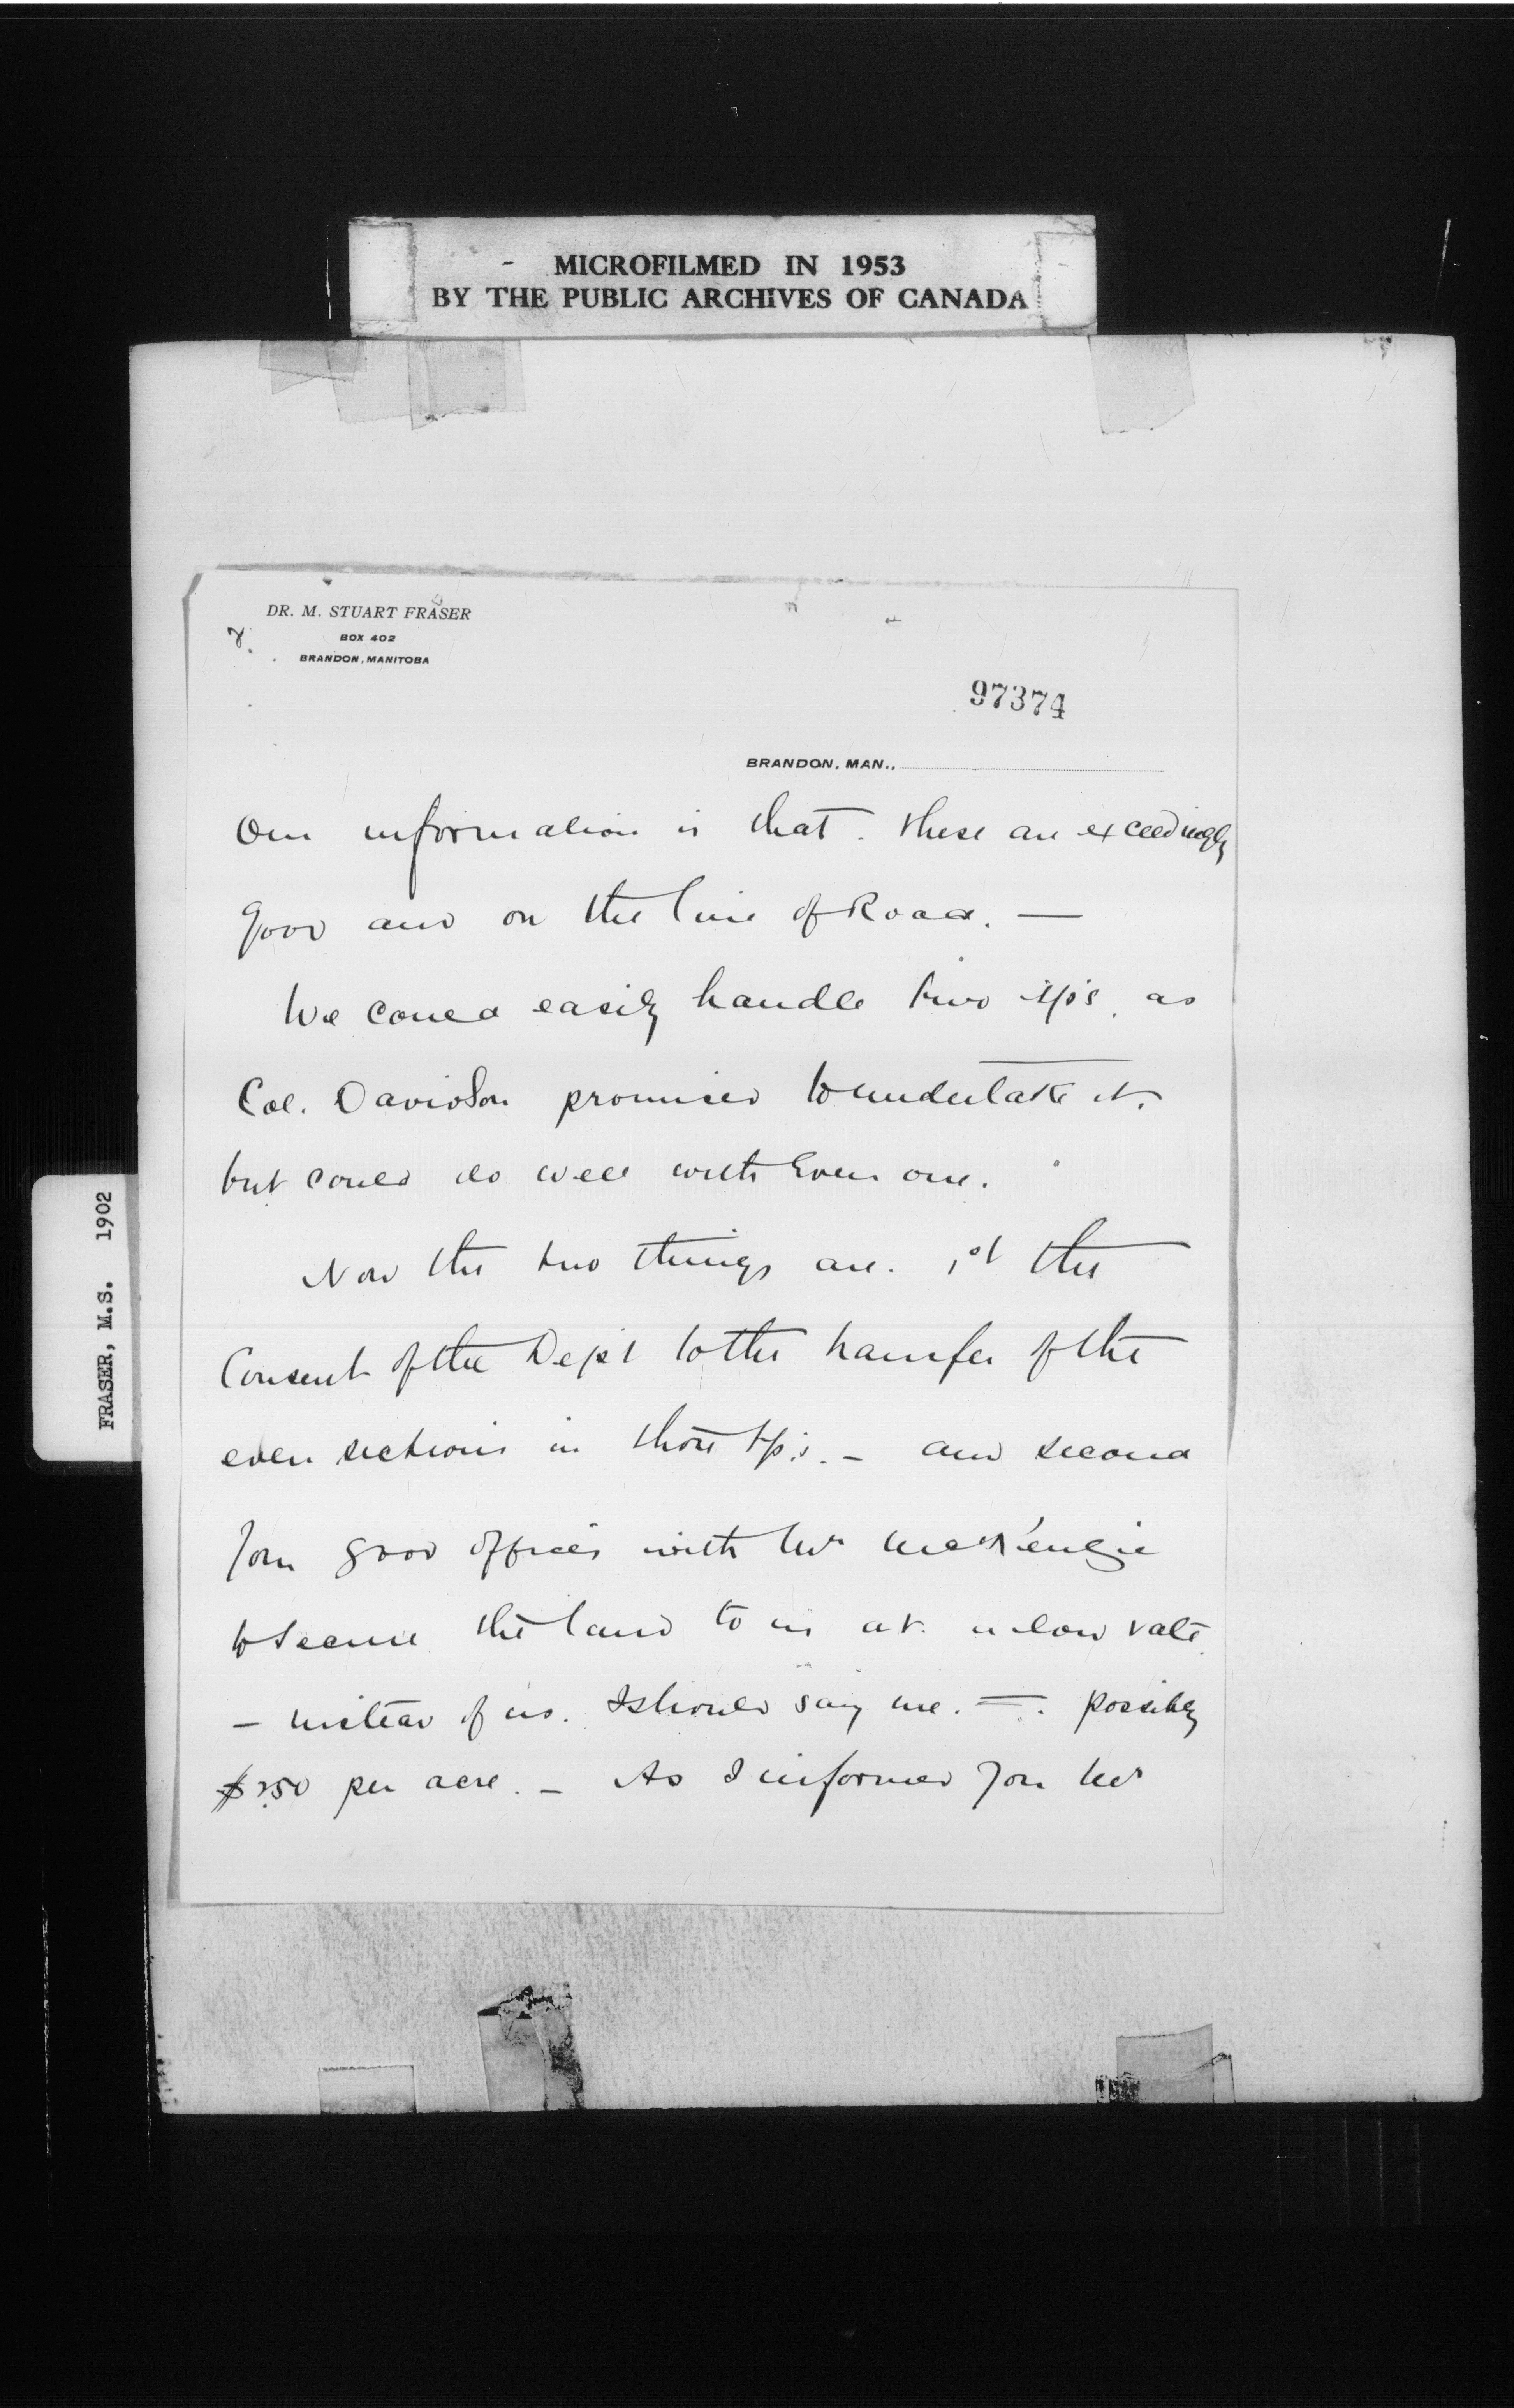 MICROFILMED IN 1953
BY THE PUBLIC ARCHIVES OF CANADA
DR. M. STUART FRASER
BOX 402
BRANDON, MANITOBA
97374
BRANDON, MAN.,
Our information is that these are exceedingly
good and on the line of Road. —
We could easily handle two tp's. as
Col. Davidson promised to undertake it.
but could do well with even one.
Now the two things are. 1st the
Consent of the Dep't to the transfer of the
even sections in those tp's. — and second
Your good offices with Mr McKenzie
to secure the land to us at a low rate.
— instead of us. I should say me. — possibly
$2.50 per acre. — As I informed you Mr
FRASER, M.S. 1902